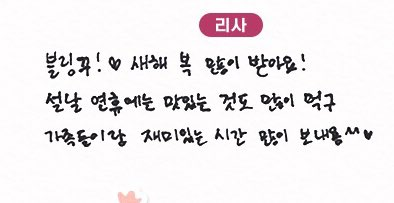 리사
블링꾸! ♡ 새해 복 많이 받아요!
설날 연휴에는 맛있는 것도 많이 먹구
가족들이랑 재미있는 시간 많이 보내용^^♡